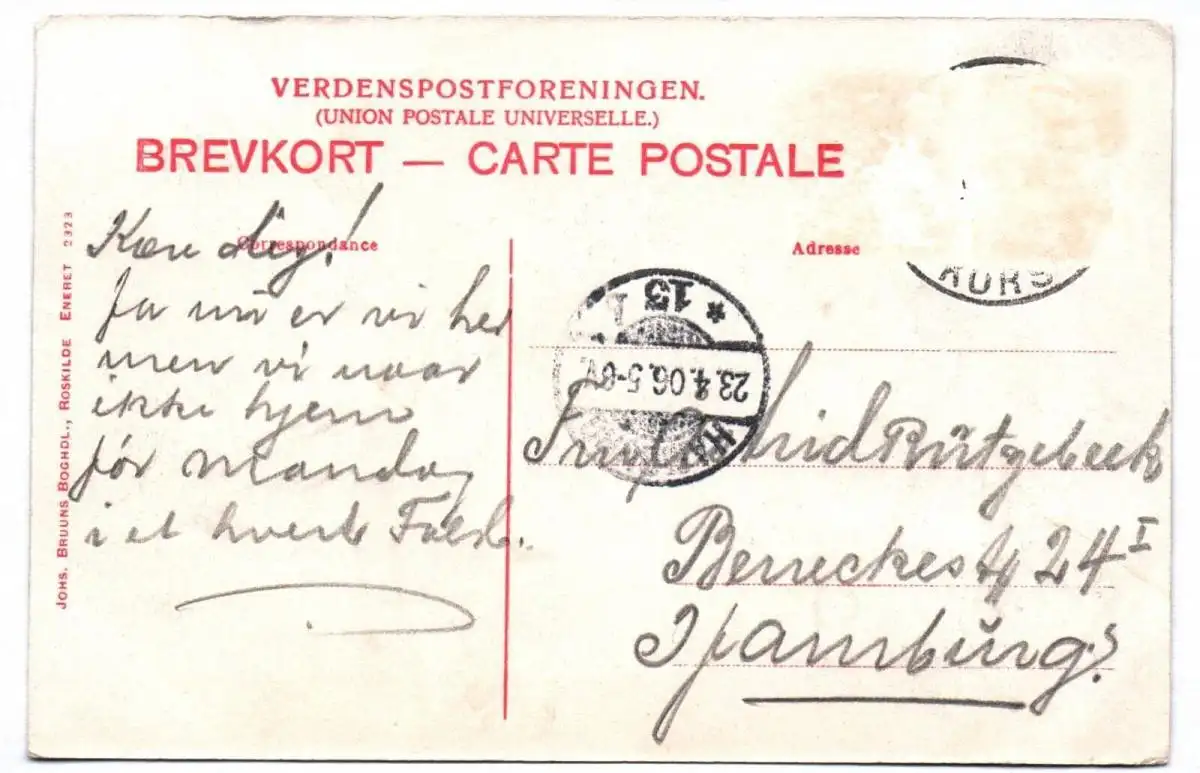 VERDENSPOSTFORENINGEN.
(UNION POSTALE UNIVERSELLE.)
BREVKORT — CARTE POSTALE
Correspondance
Adresse
JOHS. BRUUNS BOGHDL., ROSKILDE ENERET 2323
Kære dig!
Ja nu er vi her
men vi naar
ikke hjem
før mandag
i et hvert
HORS
* 13
23.4.06. 5-6
Rütgebeck
24 I
Hamburg